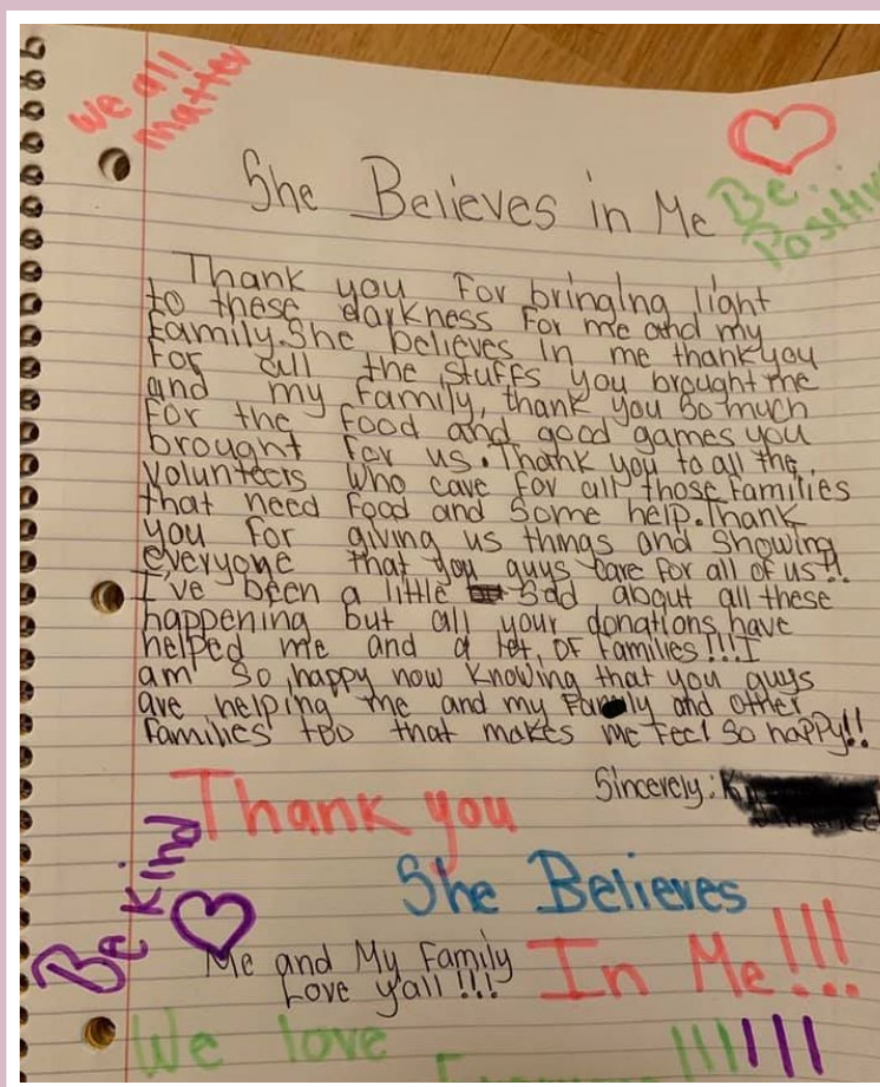 we all
matter
She Believes in Me
Be
Positiv
Thank you for bringing light
to these darkness for me and my
family. She believes in me thank you
for all the stuffs you brought me
and my family, thank you so much
for the food and good games you
brought for us. Thank you to all the
volunteers who care for all those families
that need food and some help. Thank
you for giving us things and showing
everyone that you guys care for all of us!!
I've been a little sad about all these
happening but all your donations have
helped me and a lot of families!!! I
am so happy now knowing that you guys
are helping me and my family and other
families too that makes me feel so happy!!
Sincerely: K
Thank you
She Believes
In Me!!!
Be Kind
Me and My Family
Love y'all!!!
We love